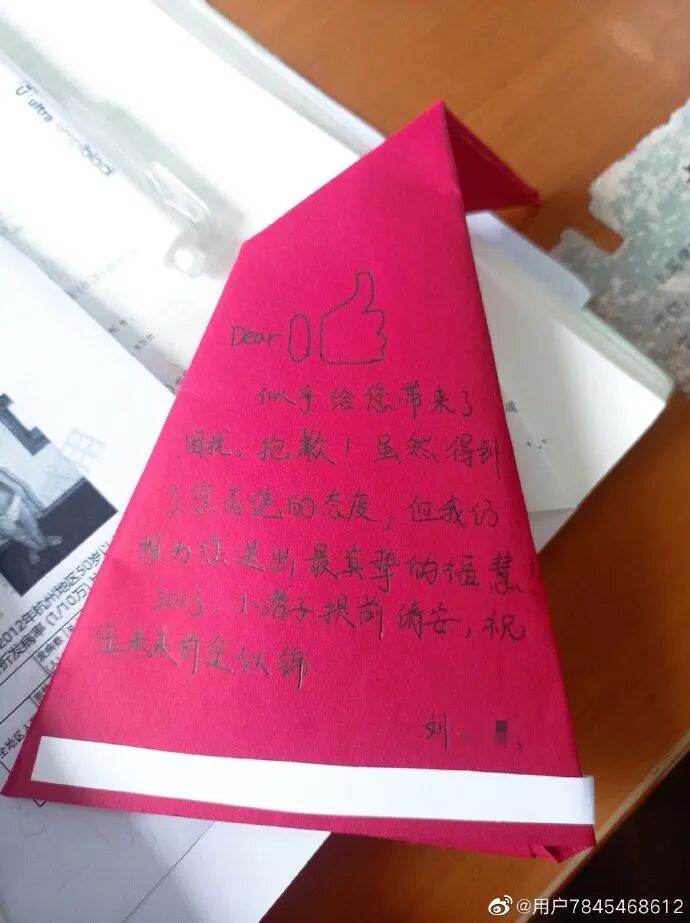 ultra
Dear
似乎给您带来了
困扰。抱歉！虽然得到
了您丢绝的态度，但我仍
想为您送出最真挚的福慧！
2023，小潜子提前请安，祝
您未来前途似锦
刘
2012年杭州地区50岁以
折发病率 (1/10万)
全地区
@用户7845468612